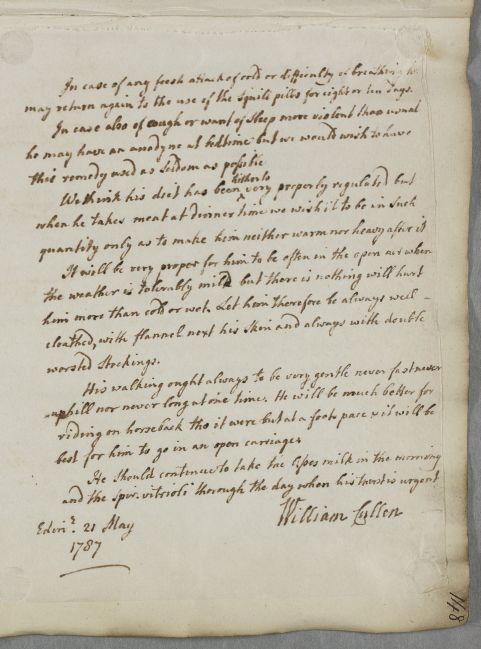 In case of any fresh attack of cold or difficulty of breathing he
may return again to the use of the squill pills for eight or ten days.
In case also of cough or want of sleep more violent than usual
he may have an anodyne at bedtime but we would wish to have
this remedy used as seldom as possible
hitherto
We think his diet has been ^ very properly regulated but
when he takes meat at dinner time we wish it to be in such
quantity only as to make him neither warm nor heavy after it
It will be very proper for him to be often in the open air when
the weather is tolerably mild but there is nothing will hurt
him more than cold or wet. Let him therefore be always well-
cloathed, with flannel next his skin and always with double
worsted stockings.
His walking ought always to be very gentle never fast never
uphill nor never long at one time. He will be much better for
riding on horseback tho it were but at a foots pace & it will be
best for him to go in an open carriage
He should continue to take the asses milk in the morning
and the spir. vitrioli thorough the day when his thirst is urgent
William Cullen
Edinr. 21 May
1787
148